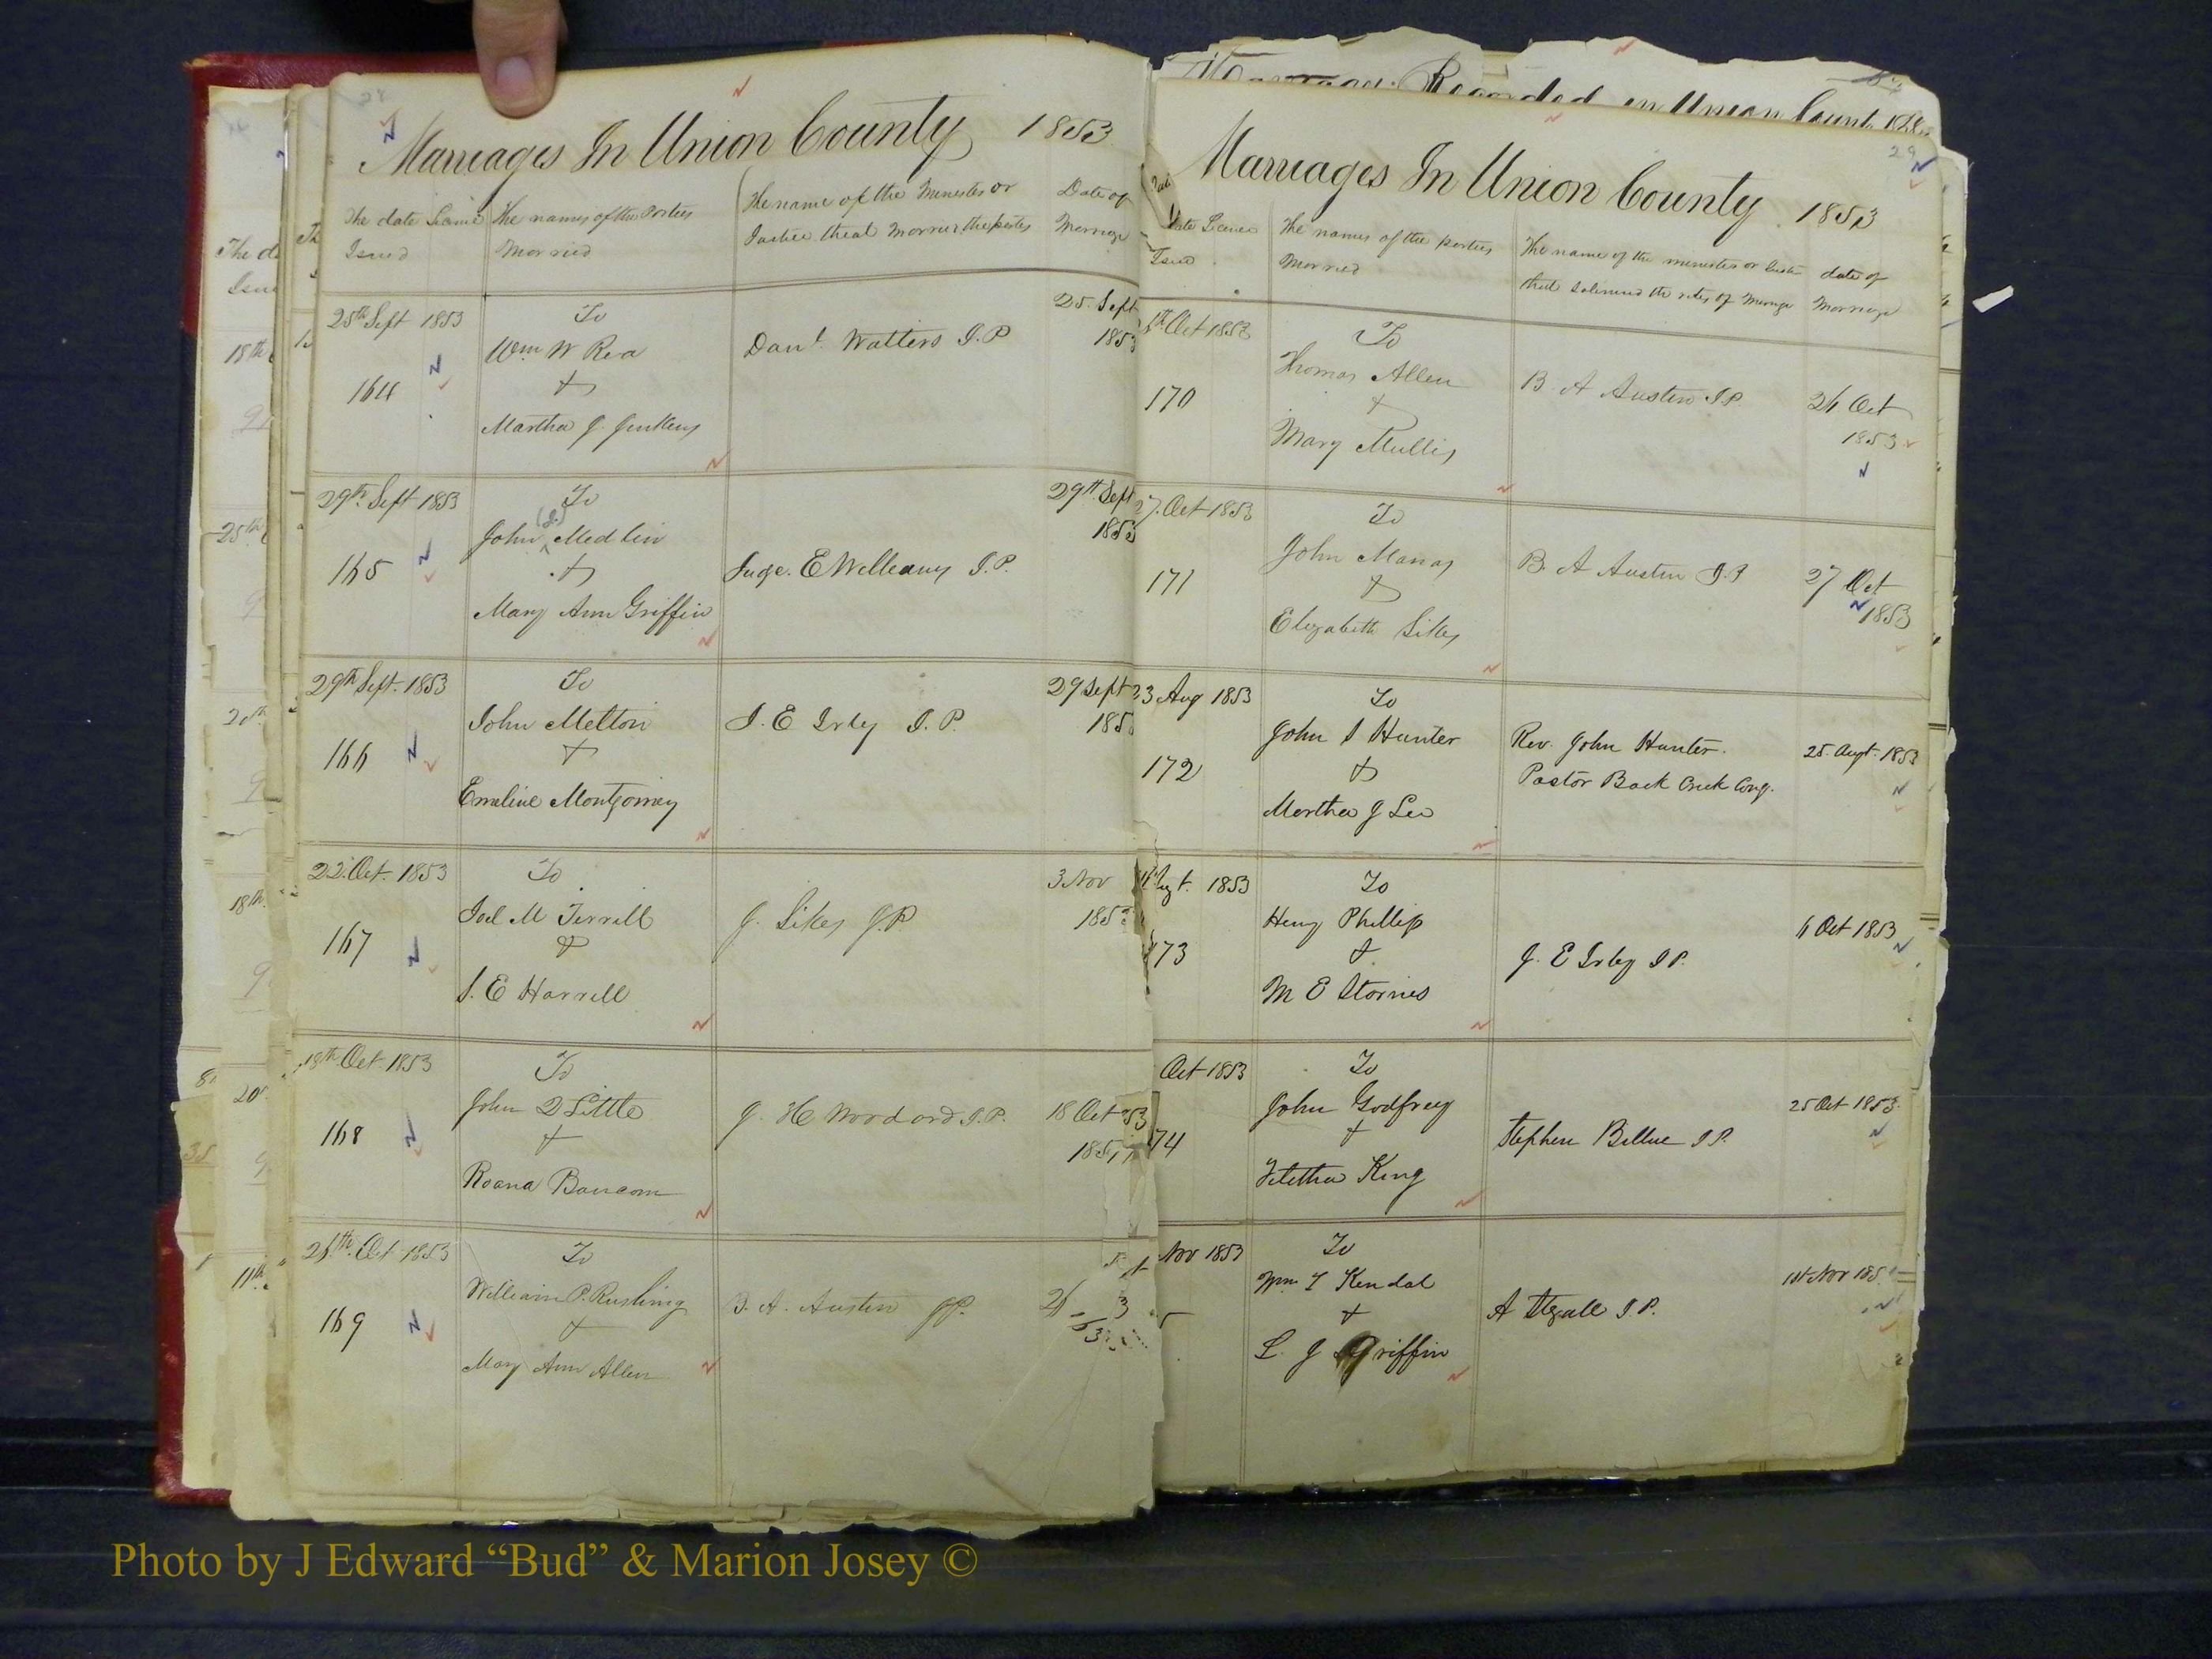 28
Marriages In Union County 1853
The date Licince
Issued
The names of the Parties
Married
The name of the Minester or
Justice that Marries the parties
Date of
Marriage
25th Sept 1853
164
To
Wm W Rea
&
Martha J. Jenkens
Danl. Watters J.P
25. Sept
1853
29th Sept 1853
165
To
John (D.) Medlin
&
Mary Ann Griffin
E Welleams J.P.
29th Sept
1853
29th Sept. 1853
166
To
John Melton
&
Emeline Montgomey
J. E Irby J.P.
29 Sept
185
22. Oct. 1853
167
To
Joel M Terrell
&
S. E Harrell
J. Sikes J.P
3 Nov
185
18th Oct. 1853
168
To
John D Little
&
Roana Baucom
J. H Woodard J.P.
18 Oct 53
185
Oct 1853
169
To
William P. Rushing
&
Mary Ann Allen
B. A. Austin JP.
Recorded in Union
29
Marriages In Union County. 1853
Date Licence
Issued
The names of the parties
Married
The name of the minester or
that solemnd the rites of Marriage
date of
Marriage
Oct 1853
170
To
Thomas Allen
&
Mary Mullis
B. A Austin J.P.
26 Oct
1853
27. Oct 1853
171
To
John Manas
&
Elizabeth Sikes
B. A Austin J.P
27 Oct
1853
23 Aug 1853
172
To
John S Hunter
&
Martha J Lee
Rev. John Hunter.
Pastor Back Creek Cong.
25. Augt. 1853
Augt. 1853
173
To
Heny Phillips
&
M E Starnes
J. E Irby J P.
6 Oct 1853
Oct 1853
74
To
John Godfrey
&
Telitha King
Stephen Billue J P.
25 Oct 1853.
Nov 1853
To
Wm T Kendal
&
L. J Griffin
A Stegall J P.
1st Nov 185
Photo by J Edward “Bud” & Marion Josey ©